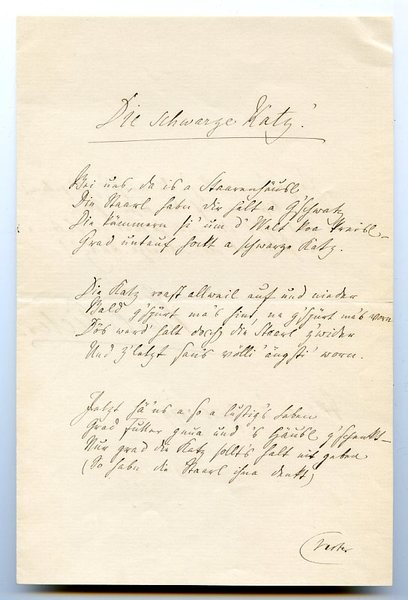 Die schwarze Katz'.
Bei uns, da is a Staarenhäusl
Die Staarl habn dir halt a G'schwatz
Die kümmern si' um d' Welt koa Kreisl –
Grad untauf hockt a schwarze Katz.
Die Katz roast allweil auf und nieder
Bald g'spürt ma's hint, na g'spürt ma's vorn
Dös werd halt doch die Staarl z'wider
Und z'letzt sans völli' ängsti' worn.
Jetzt hä'ns a so a lustig's Leben
Grad Futter gnua und 's Häusl g'schenkt –
Nur grad die Katz sollt's halt nit geben
(So habn die Staarl ihna denkt)